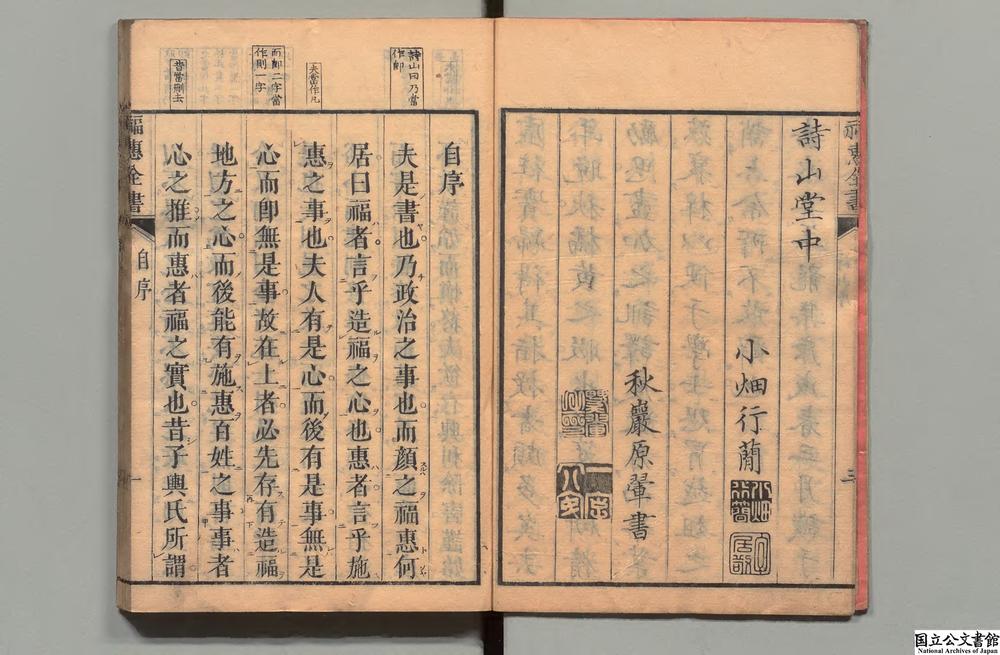 詩山堂中
小畑行蕑
秋巖原翬書
詩山曰乃當
作即
夫當作凡
而即二字當
作則一字
昔當刪去
自序
夫是書也乃政治之事也而顏之福惠何
居曰福者言乎造福之心也惠者言乎施
惠之事也夫人有是心而後有是事無是
心而即無是事故在上者必先存有造福
地方之心而後能有施惠百姓之事事者
心之推而惠者福之實也昔子輿氏所謂
福惠全書
自序
一
国立公文書館
National Archives of Japan